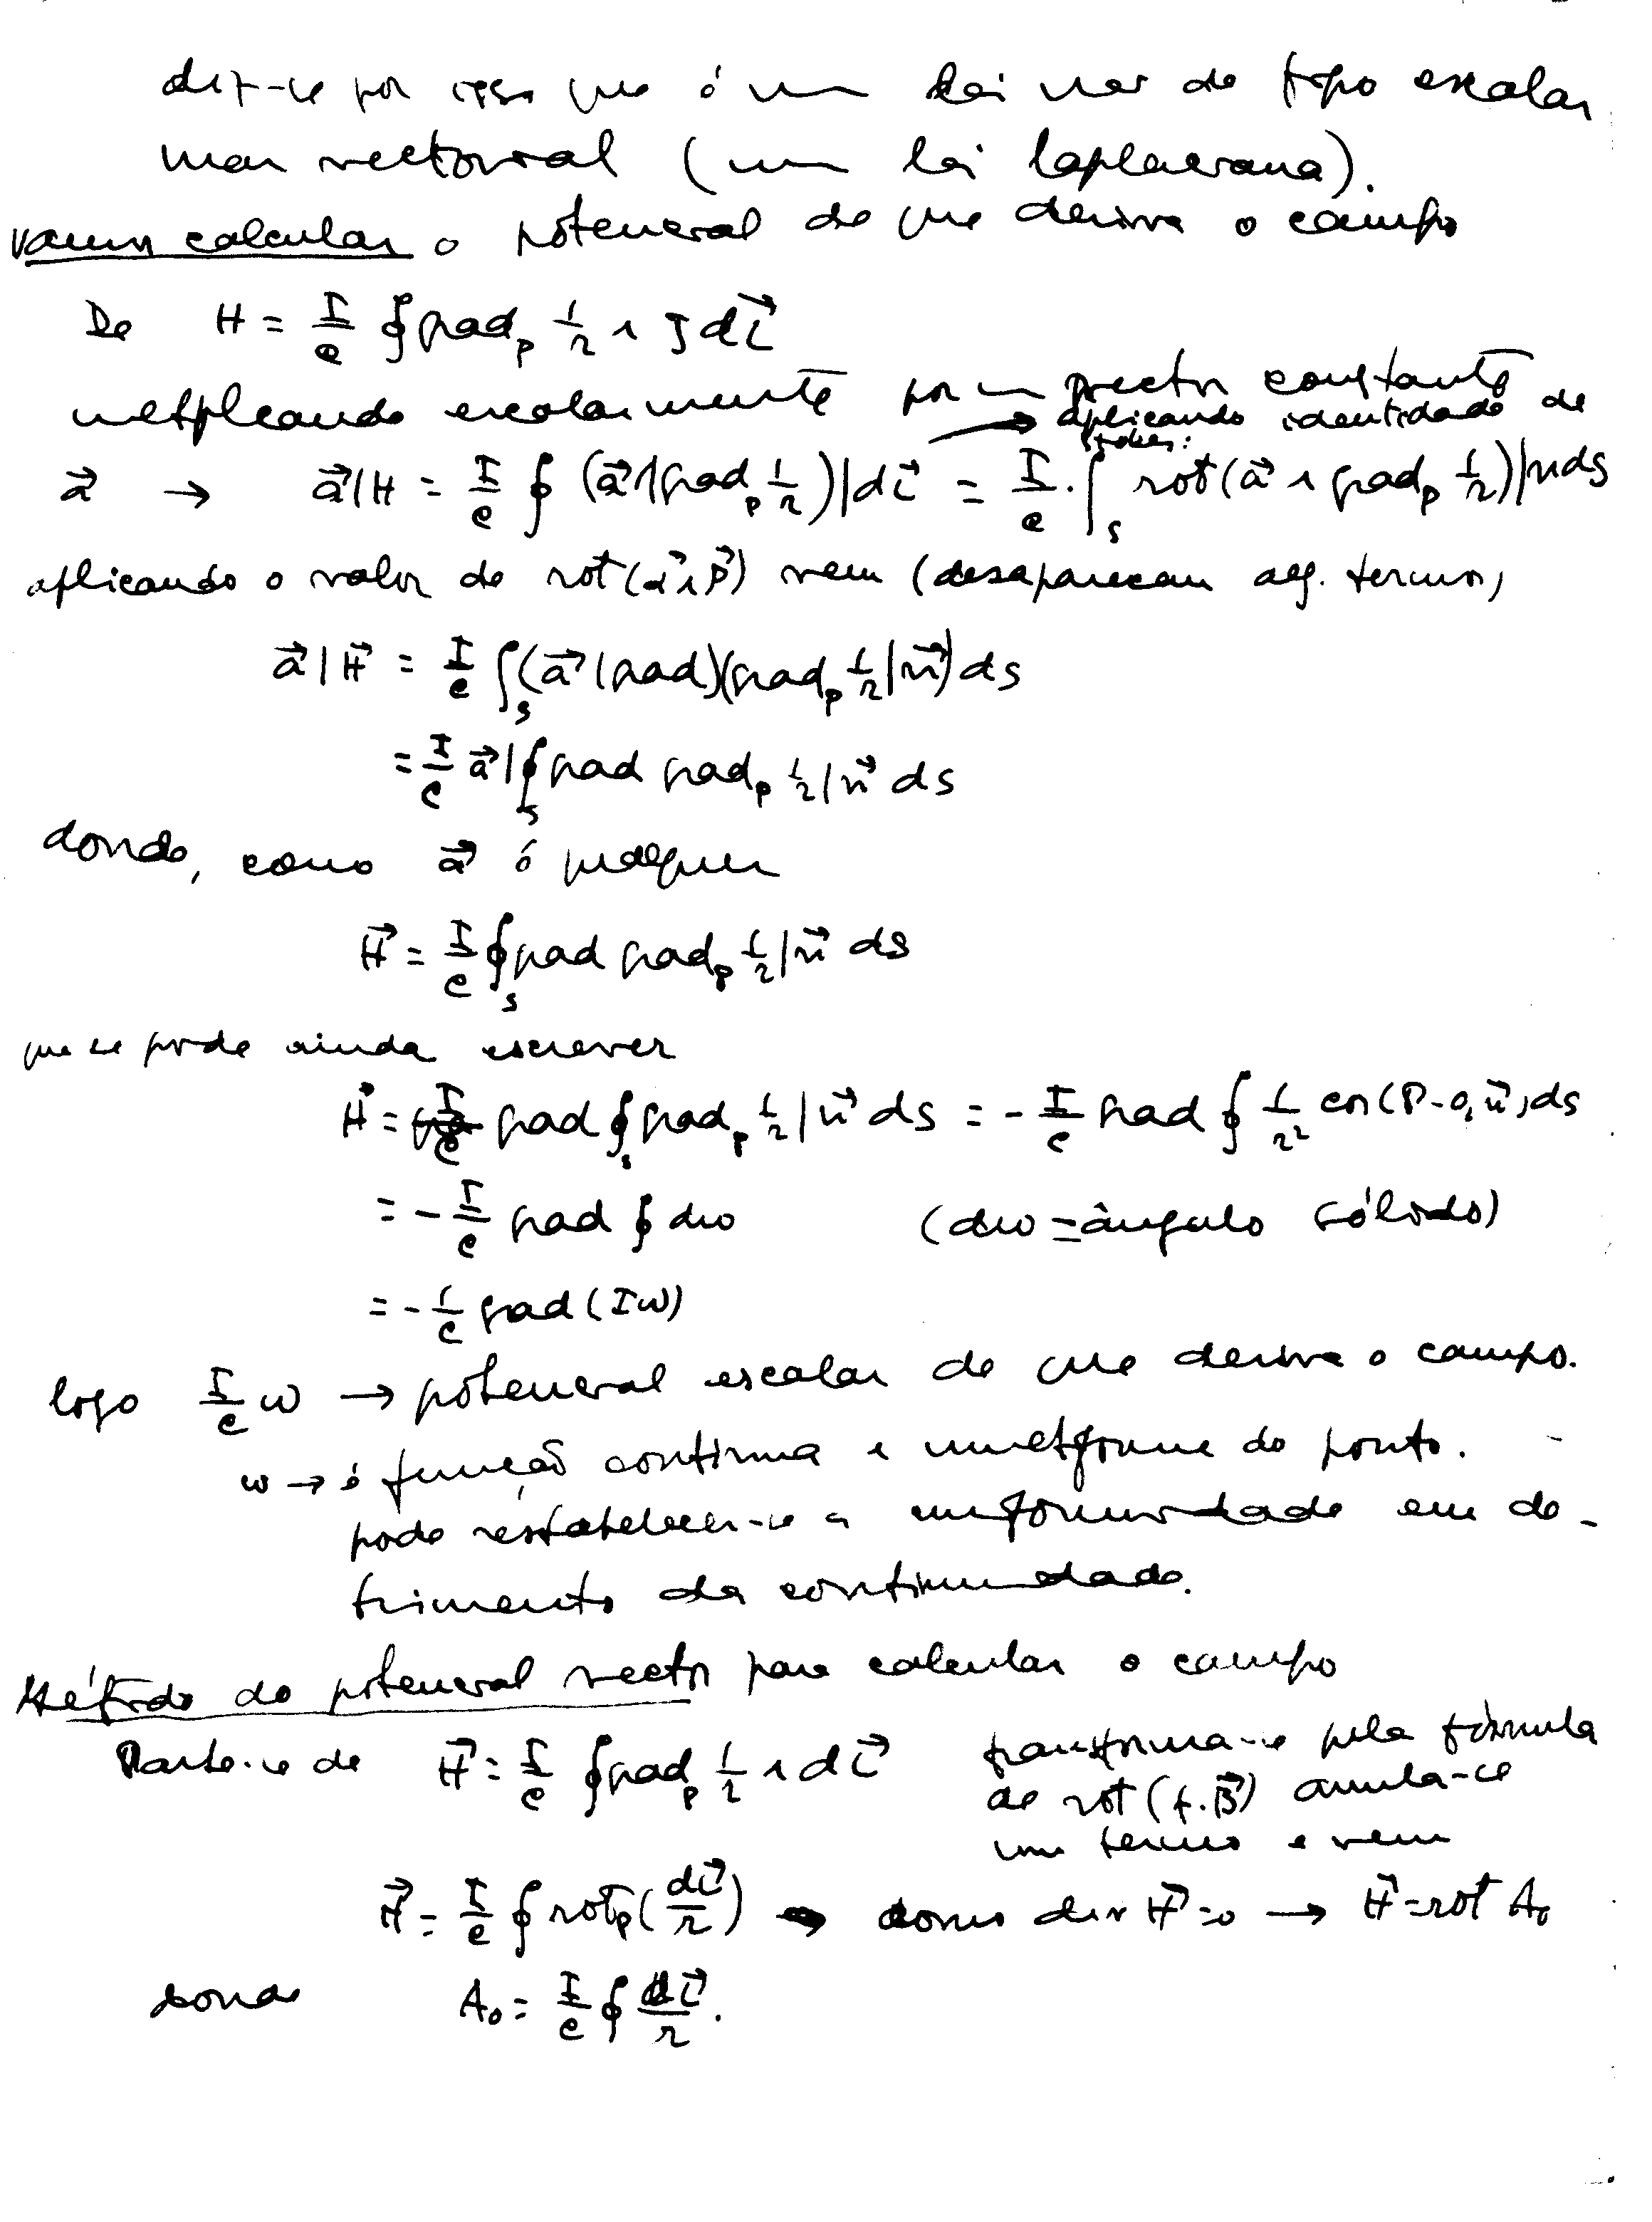 diz-se por isso que é um lei nas do tipo escalar
mas vectorial (um lei laplaciana).
vamos calcular o potencial de que deriva o campo
De H = I/c ∮ grad_p 1/r ∧ I dl⃗
multiplicando escalarmente por um vector constante
→ aplicando identidade de Stokes:
a⃗ → a⃗|H = I/c ∮ (a⃗ ∧ grad_p 1/r)|dl⃗ = I/c · ∫_S rot(a⃗ ∧ grad_p 1/r)|n ds
aplicando o valor de rot(α⃗ ∧ β⃗) vem (desaparecem alg. termos)
a⃗|H⃗ = I/c ∫_S (a⃗|grad)(grad_p 1/r|n⃗) ds
= I/c a⃗|∮_S grad grad_p 1/r|n⃗ ds
donde, como a⃗ é qualquer
H⃗ = I/c ∮_S grad grad_p 1/r|n⃗ ds
que se pode ainda escrever
H⃗ = I/c grad ∮_S grad_p 1/r|n⃗ ds = - I/c grad ∮ 1/r² cos(P-O, n⃗) ds
= - I/c grad ∮ dω (dω = ângulo sólido)
= - 1/c grad (Iω)
logo I/c ω → potencial escalar de que deriva o campo.
ω → é função contínua e multiforme do ponto.
pode restabelecer-se a uniformidade em de-
trimento da continuidade.
Método do potencial vector para calcular o campo
Parte-se de H⃗ = I/c ∮ grad_p 1/r ∧ dl⃗ transforma-se pela fórmula
de rot (f.B⃗) anula-se
um termo e vem
H⃗ = I/c ∮ rot_p (dl⃗/r) → como div H⃗ = 0 → H⃗ = rot A₀
donde A₀ = I/c ∮ dl⃗/r.